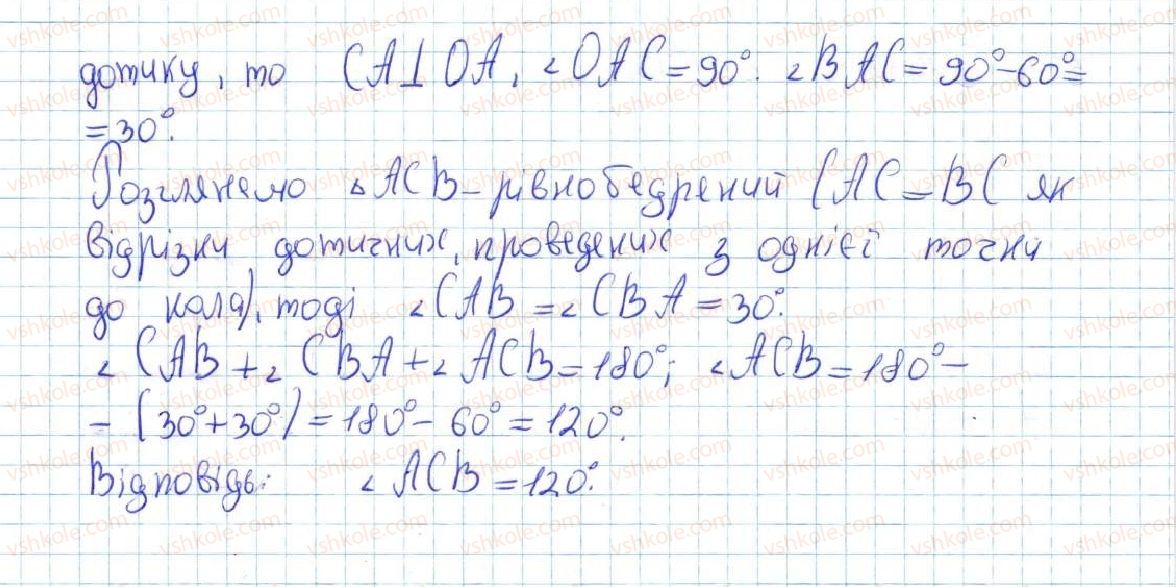 дотику, то CA⊥OA, ∠OAC=90°. ∠BAC=90°-60°=
=30°.
Розглянемо △ACB-рівнобедрений (AC=BC як
відрізки дотичних, проведених з однієї точки
до кола), тоді ∠CAB=∠CBA=30°.
∠CAB+∠CBA+∠ACB=180°; ∠ACB=180°-
-(30°+30°)=180°-60°=120°.
Відповідь: ∠ACB=120°.